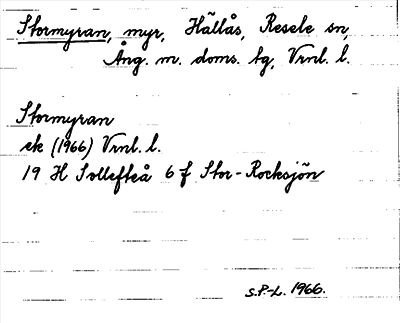 Stormyran, myr, Hällås, Resele sn,
Ång. m. doms. tg, Vrnl. l.
Stormyran
ek (1966) Vrnl. l.
19 H Sollefteå 6 f Stor-Rocksjön
S.P.-L. 1966.